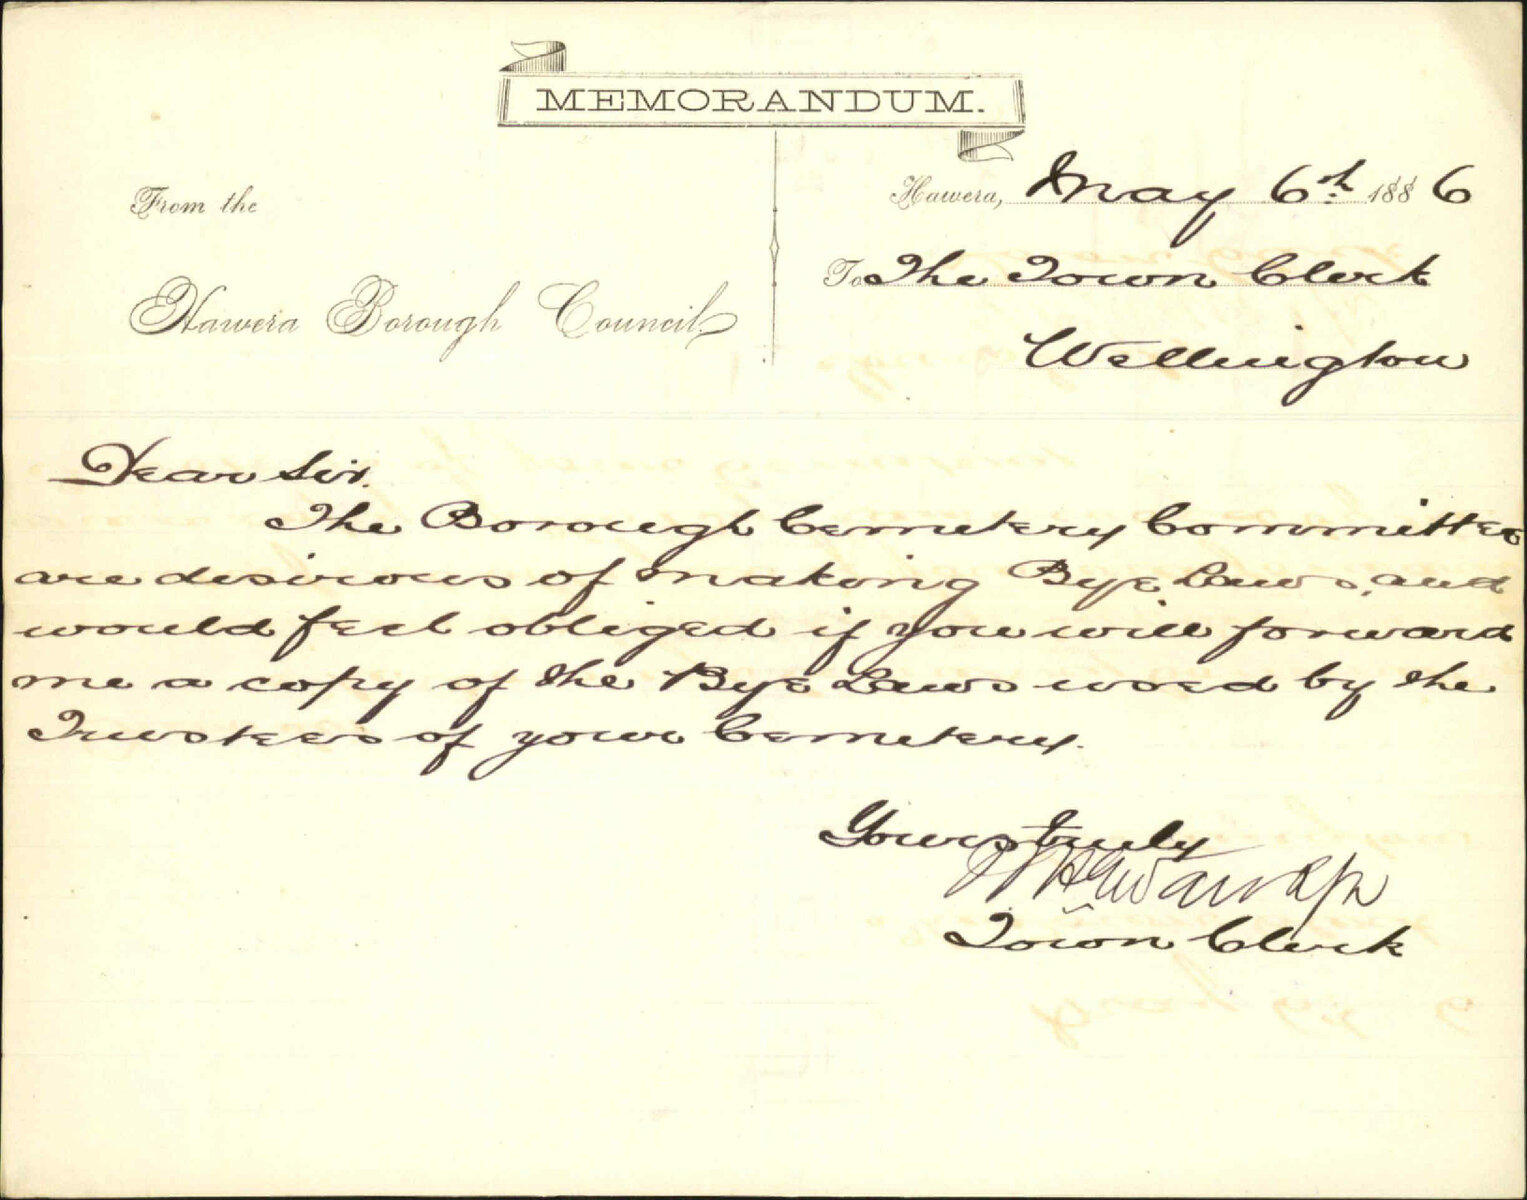 MEMORANDUM.
From the
Hawera Borough Council
Hawera, May 6th. 1886
To The Town Clerk
Wellington
Dear Sir.
The Borough Cemetery Committee
are desirous of making Bye Laws, and
would feel obliged if you will forward
me a copy of the Bye Laws used by the
Trustees of your Cemetery.
Yours truly
Town Clerk